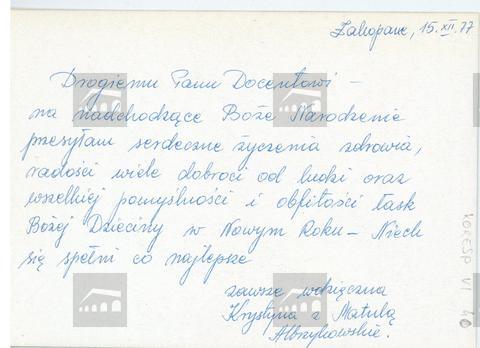 Zakopane, 15.XII.77
Drogiemu Panu Docentowi –
na nadchodzące Boże Narodzenie
przesyłam serdeczne życzenia zdrowia,
radości wiele dobroci od ludzi oraz
wszelkiej pomyślności i obfitości łask
Bożej Dzieciny w Nowym Roku – Niech
się spełni co najlepsze
zawsze wdzięczna
Krystyna z Matulą
KORESP VI